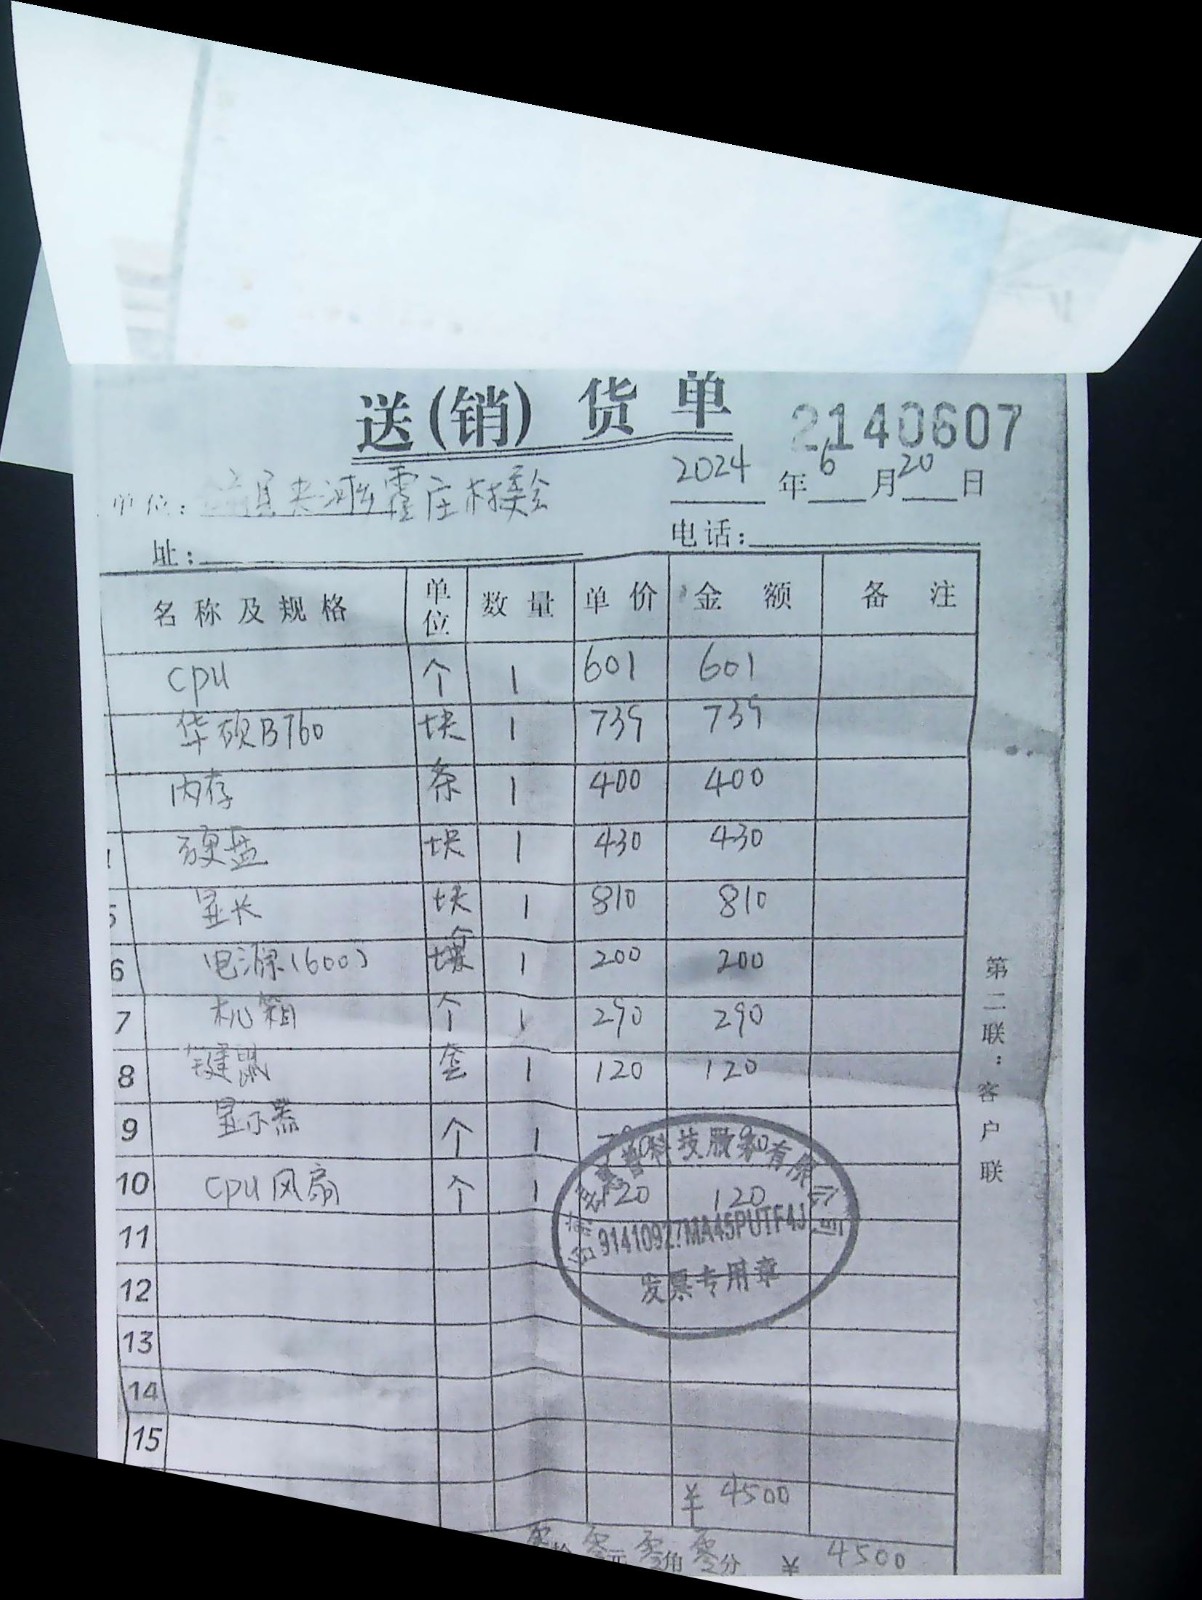 送(销)货单
2140607
2024年6月20日
单位:台前县夹河乡霍庄村委会
址: 电话:
名称及规格 单位 数量 单价 金额 备注
cpu 个 1 601 601
华硕B760 块 1 739 739
内存 条 1 400 400
硬盘 块 1 430 430
5 显卡 块 1 810 810
6 电源(600) 个 1 200 200
7 机箱 个 1 290 290
8 键鼠 套 1 120 120
9 显示器 个 1
10 cpu风扇 个 1 120 120
11
12
13
14
15
¥4500
零拾零元零角零分 ¥ 4500
第二联:客户联
科技股份有限公司
91410927MA45PUTF4J
发票专用章